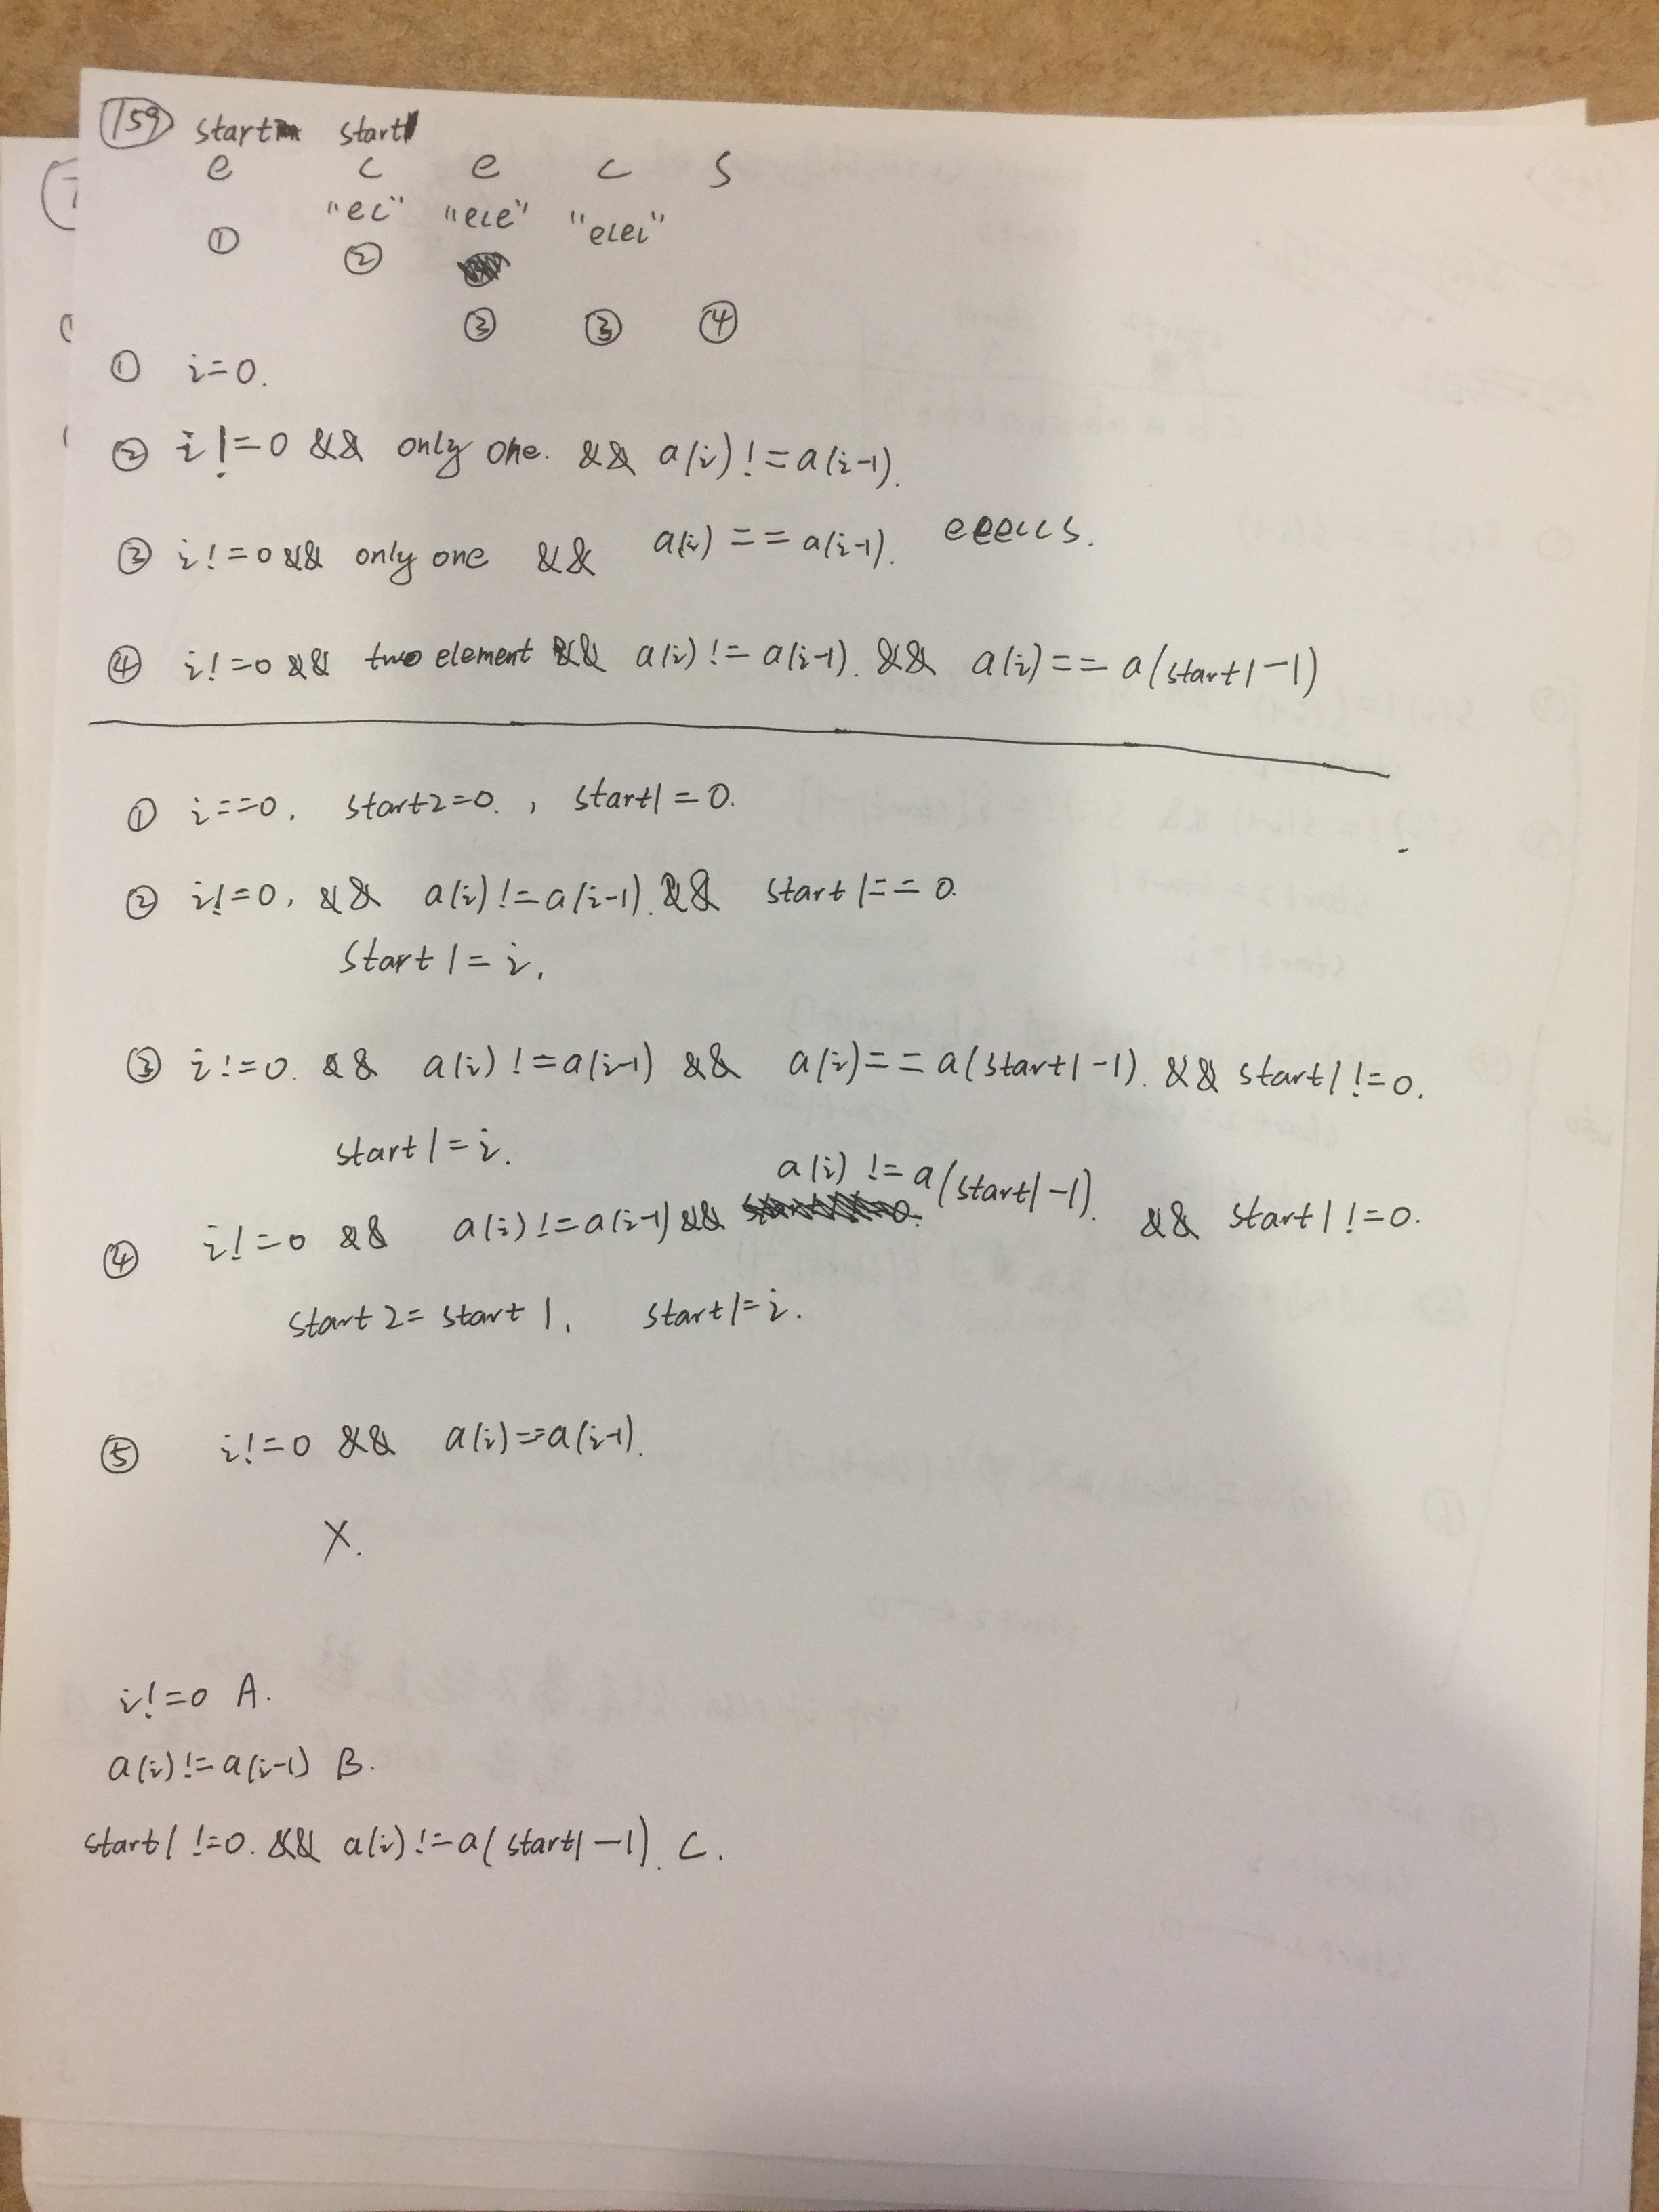 159 start start
e c e c s
"ec" "ece" "ecec"
① ②
③ ③ ④
① i=0.
② i!=0 && only one. && a(i)!=a(i-1).
③ i!=0 && only one && a(i)==a(i-1). eeeccs.
④ i!=0 && two element && a(i)!=a(i-1). && a(i)==a(start1-1)
① i==0, start2=0., start1=0.
② i!=0, && a(i)!=a(i-1). && start1==0.
start1=i.
③ i!=0. && a(i)!=a(i-1) && a(i)==a(start1-1). && start1!=0.
start1=i.
④ i!=0 && a(i)!=a(i-1) && a(i)!=a(start1-1). && start1!=0.
start2=start1, start1=i.
⑤ i!=0 && a(i)==a(i-1).
X.
i!=0 A.
a(i)!=a(i-1) B.
start1!=0. && a(i)!=a(start1-1). C.